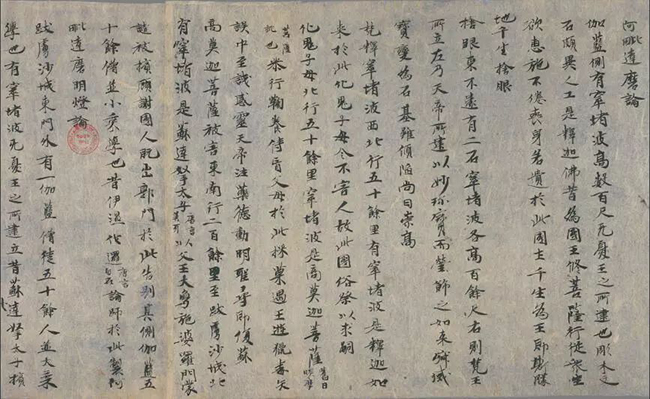 阿毗達磨論
伽藍側有窣堵波高數百尺无憂王之所建也彫木文
石頗異人工是釋迦佛昔為國王修菩薩行從眾生
欲惠施不倦喪身若遺於此國土千生為王即斯勝
地千生捨眼
捨眼東不遠有二石窣堵波各高百餘尺右則梵王
所立左乃天帝所建以妙珍寶而瑩飾之如來寂滅
寶變為石基雖傾陷尚曰崇高
梵釋窣堵波西北行五十餘里有窣堵波是釋迦如
來於此化鬼子母令不害人故此國俗祭以求嗣
化鬼子母北行五十餘里窣堵波是商莫迦菩薩舊曰睒摩
菩薩訛也恭行鞠養侍盲父母於此採菓遇王遊獵毒矢
誤中至誠感靈天帝注藥德動明聖尋即復蘇
商莫迦菩薩被害東南行二百餘里至跋虜沙城北
有窣堵波是蘇達拏太子唐言以父王大象施婆羅門蒙
譴被擯顧謝國人既出郭門於此告別其側伽藍五
十餘僧並小乘學也昔伊濕伐邏唐言自在論師於此製阿
毗達磨明燈論
跋虜沙城東門外有一伽藍僧徒五十餘人並大乘
學也有窣堵波无憂王之所建立昔蘇達拏太子擯